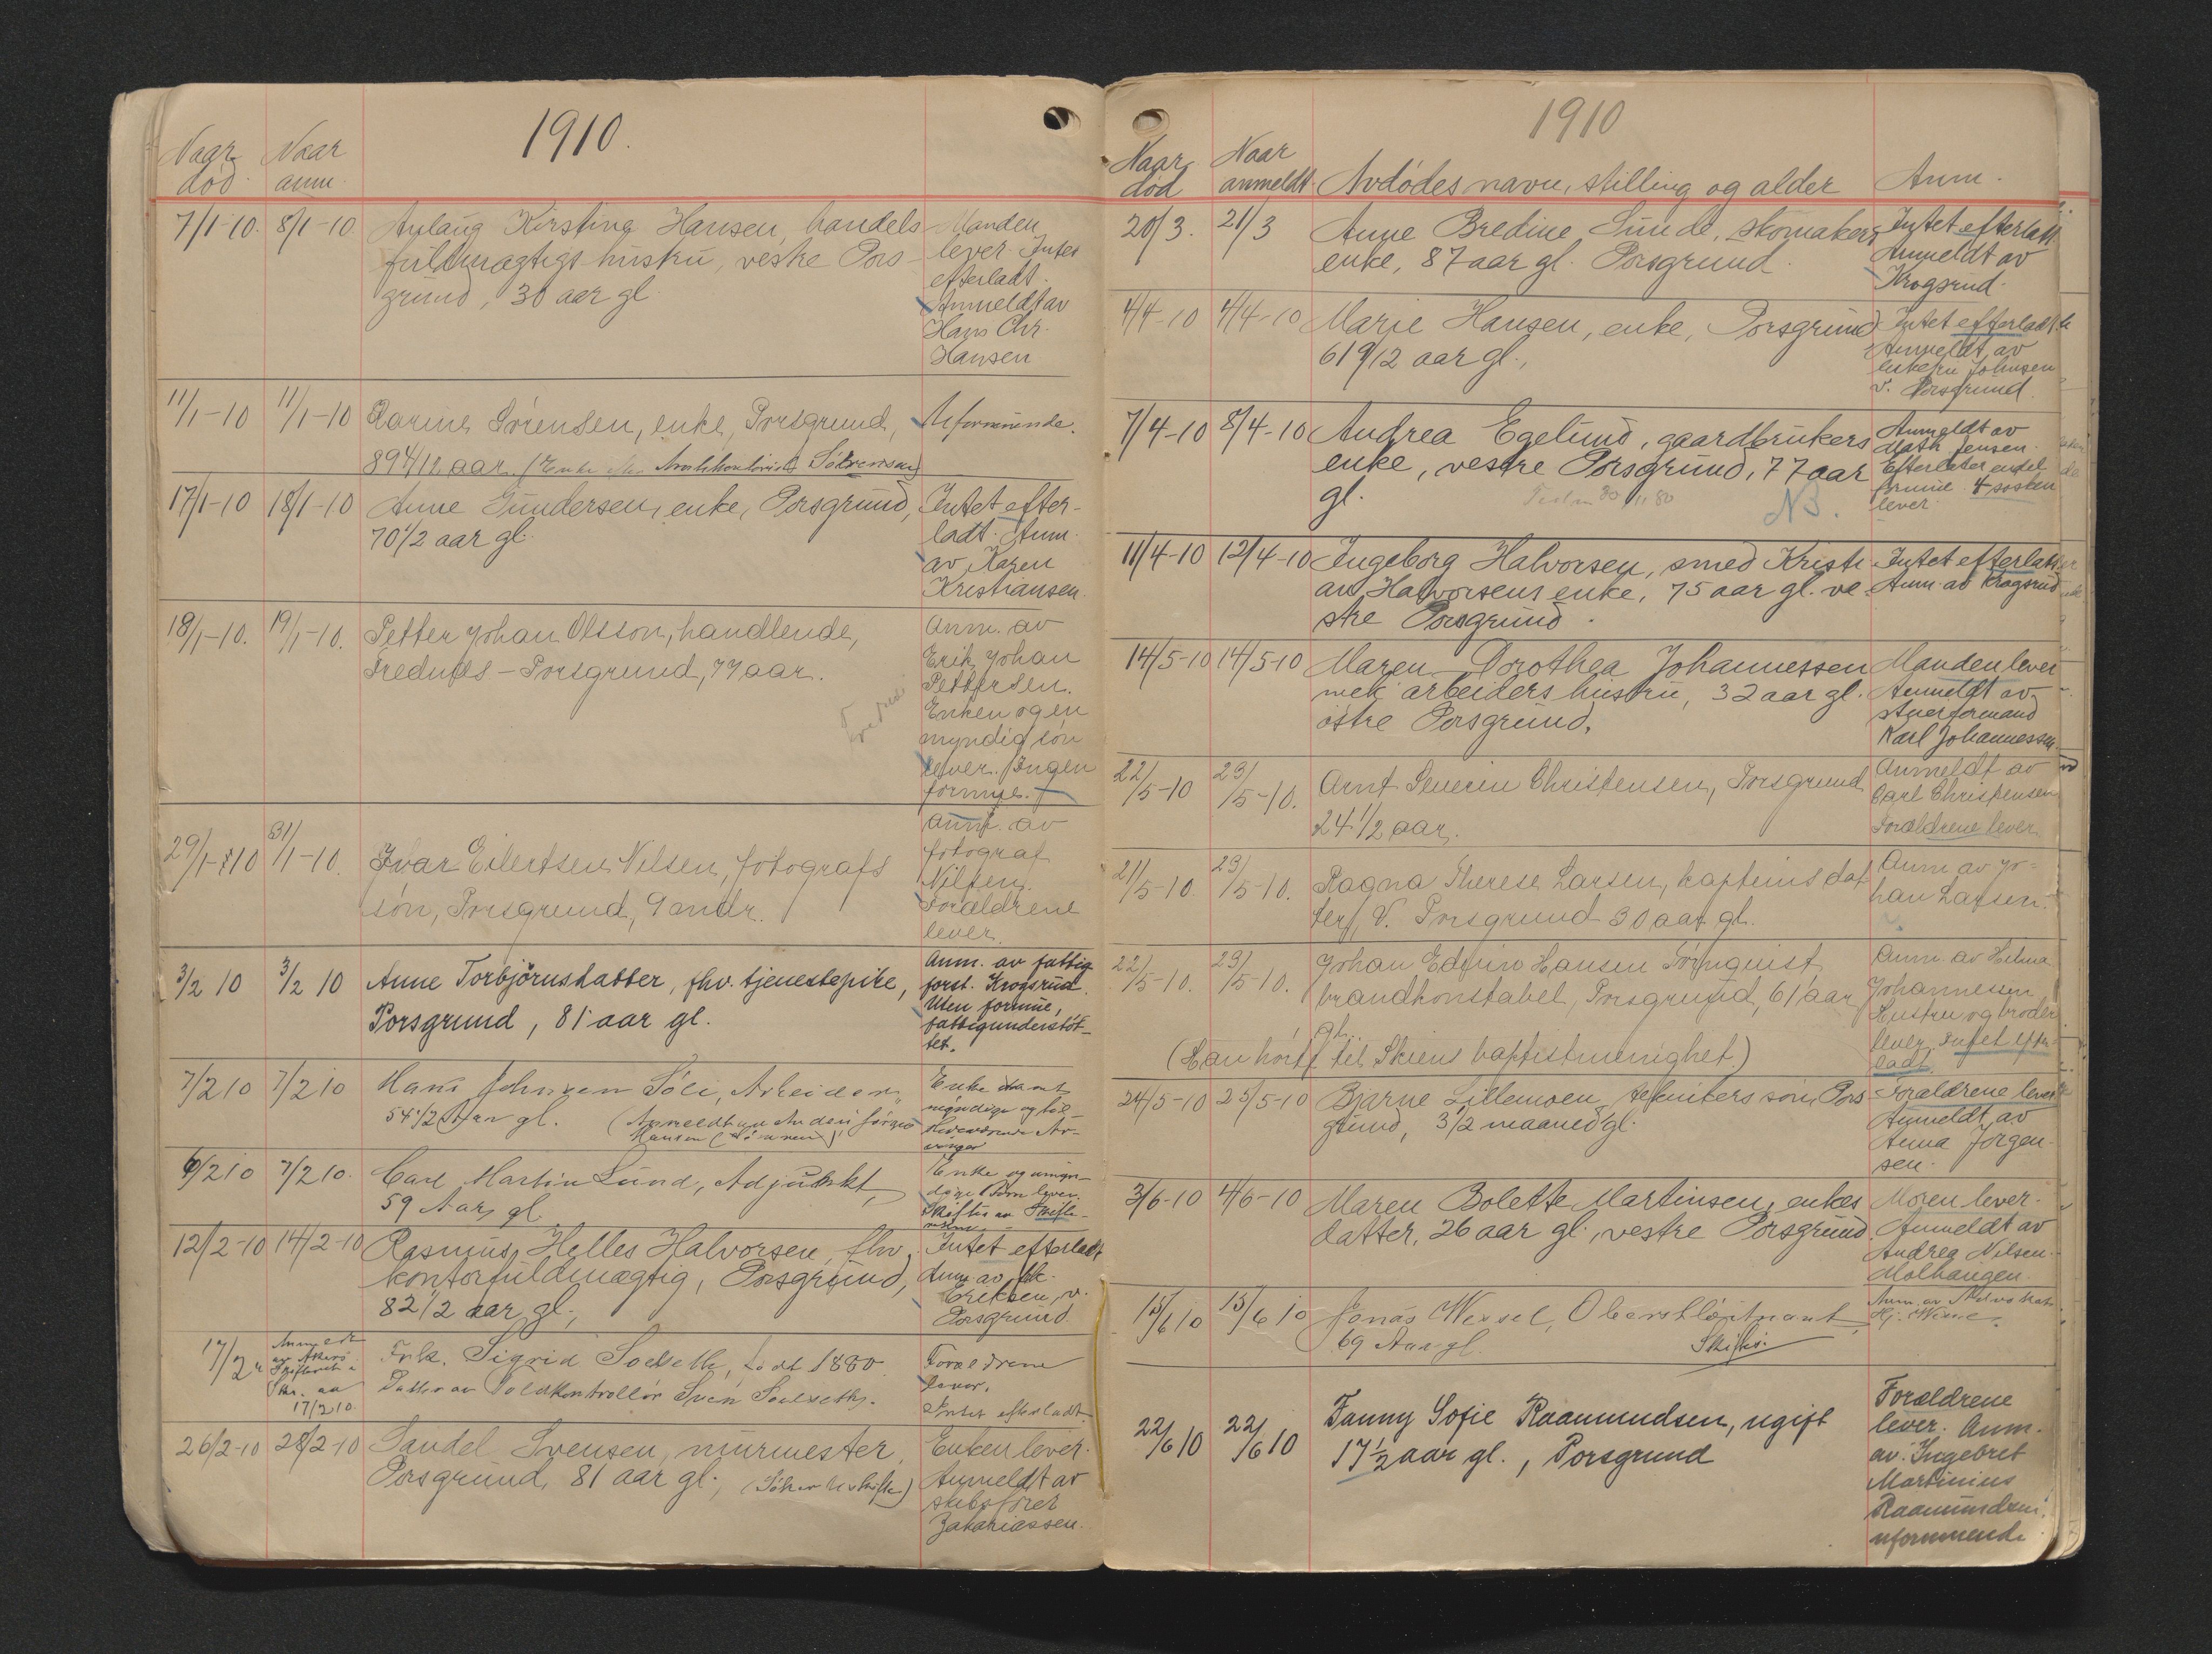 1910.
Naar død. Naar anm.
7/1-10. 8/1-10. Aslaug Kirstine Hansen, handels-
fuldmægtigs hustru, vestre Pors-
grund, 30 aar gl.
Manden
lever. Intet
efterladt.
Anmeldt av
Hans Chr.
Hansen.
11/1-10 11/1-10 Karine Sörensen, enke, Porsgrund,
89 4/12 aar. (Enke
Uformuende.
17/1-10 18/1-10 Anne Gundersen, enke, Porsgrund,
70 1/2 aar gl.
Intet efter-
ladt. Anm.
av Karen
Kristiansen.
18/1-10. 19/1-10. Petter Johan Olsson, handlende,
Frednes - Porsgrund, 77 aar.
Anm. av
Erik Johan
Pettersen.
Enken og en
myndig sön
lever. Ingen
formue.
29/1-10 31/1-10. Ivar Eilertsen Nilsen, fotografs
sön, Porsgrund, 9 mdr.
Anm. av
fotograf
Nilsen.
Forældrene
lever.
3/2 10 3/2 10 Anne Torbjörnsdatter, fhv. tjenestepike,
Porsgrund, 81 aar gl.
Anm. av fattig-
forst. Krogsrud.
Uten formue,
fattigunderstöt-
tet.
7/2 10 7/2 10 Hans Johnsen Söli, Arbeider,
54 1/2 Aar gl. (Anmeldt av
Hansen
Enke samt
myndige og
6/2 10 7/2 10. Carl Martin Lund, Adjunkt,
59 Aar gl.
Enke og umyn-
dige Barn lever.
Skiftes av Skifte-
12/2-10 14/2-10 Rasmus Helles Halvorsen, fhv.
kontorfuldmægtig, Porsgrund,
82 1/2 aar gl.,
Intet efterladt
Anm. av frk.
Eriksen, v.
Porsgrund
17/2 Anmeldt
17/2 10. Frk. Sigrid Soelseth, födt 1880
Datter av Toldkontrollör Sven Soelseth.
Forældrene
lever.
Intet efterladt.
26/2-10 28/2-10 Sandel Svensen, murmester,
Porsgrund, 81 aar gl.,
Enken lever.
Anmeldt av
skibsförer
Zakariassen.
1910
Naar død Naar anmeldt. Avdödes navn, stilling og alder Anm.
20/3. 21/3 Anne Bredine Sunde, skomakers
enke, 87 aar gl. Porsgrund.
Intet efterlatt
Anmeldt av
Krogsrud.
4/4-10 4/4-10 Marie Hansen, enke, Porsgrund
61 9/12 aar gl.,
Intet efterladt
Anmeldt av
enkefru Johnsen
v. Porsgrund.
7/4-10 8/4-10 Andrea Egelund, gaardbrukers
enke, vestre Porsgrund, 77 aar
gl.
NB.
Anmeldt av
Math. Jensen.
Efterlater endel
formue. 4 sösken
lever.
11/4-10 12/4-10 Ingeborg Halvorsen, smed Kristi-
an Halvorsens enke, 75 aar gl. ve-
stre Porsgrund.
Intet efterlatt
Anm. av Krogsrud
14/5-10 14/5-10 Maren Dorothea Johannessen
mek. arbeiders hustru, 32 aar gl.
östre Porsgrund.
Manden lever
Anmeldt av
stuerformand
Karl Johannessen.
22/5-10 23/5-10. Arnt Severin Christensen, Porsgrund
24 1/2 aar.
Anmeldt av
Carl Christensen
Forældrene lever.
21/5-10. 23/5-10. Ragna Therese Larsen, kapteins dat-
ter, V. Porsgrund 30 aar gl.
Anm. av Jo-
han Larsen.
22/5-10. 23/5-10. Johan Edwin Hansen Törnquist
brandkonstabel, Porsgrund, 61 aar
gl.
(Han hörte til Skiens baptistmenighet)
Anm. av Helma
Johannessen
Hustru og broder
lever. Intet efter-
ladt.
24/5-10 25/5-10 Bjarne Lillemoen, teknikers sön, Pors-
grund, 3 1/2 maaned gl.
Forældrene lever
Anmeldt av
Anna Jörgen-
sen.
3/6-10 4/6-10 Maren Bolette Martinsen, enkes
datter, 26 aar gl., vestre Porsgrund.
Moren lever.
Anmeldt av
Andrea Nilsen.
Molhaugen.
15/6 10 15/6 10 Jonas Wessel, Oberstlöitnant,
69 Aar gl. Skiftes.
22/6 10 22/6 10 Fanny Sofie Raamundsen, ugift
17 1/2 aar gl., Porsgrund
Forældrene
lever. Anm.
av Ingebret
Martinius
Raamundsen.
uformuende